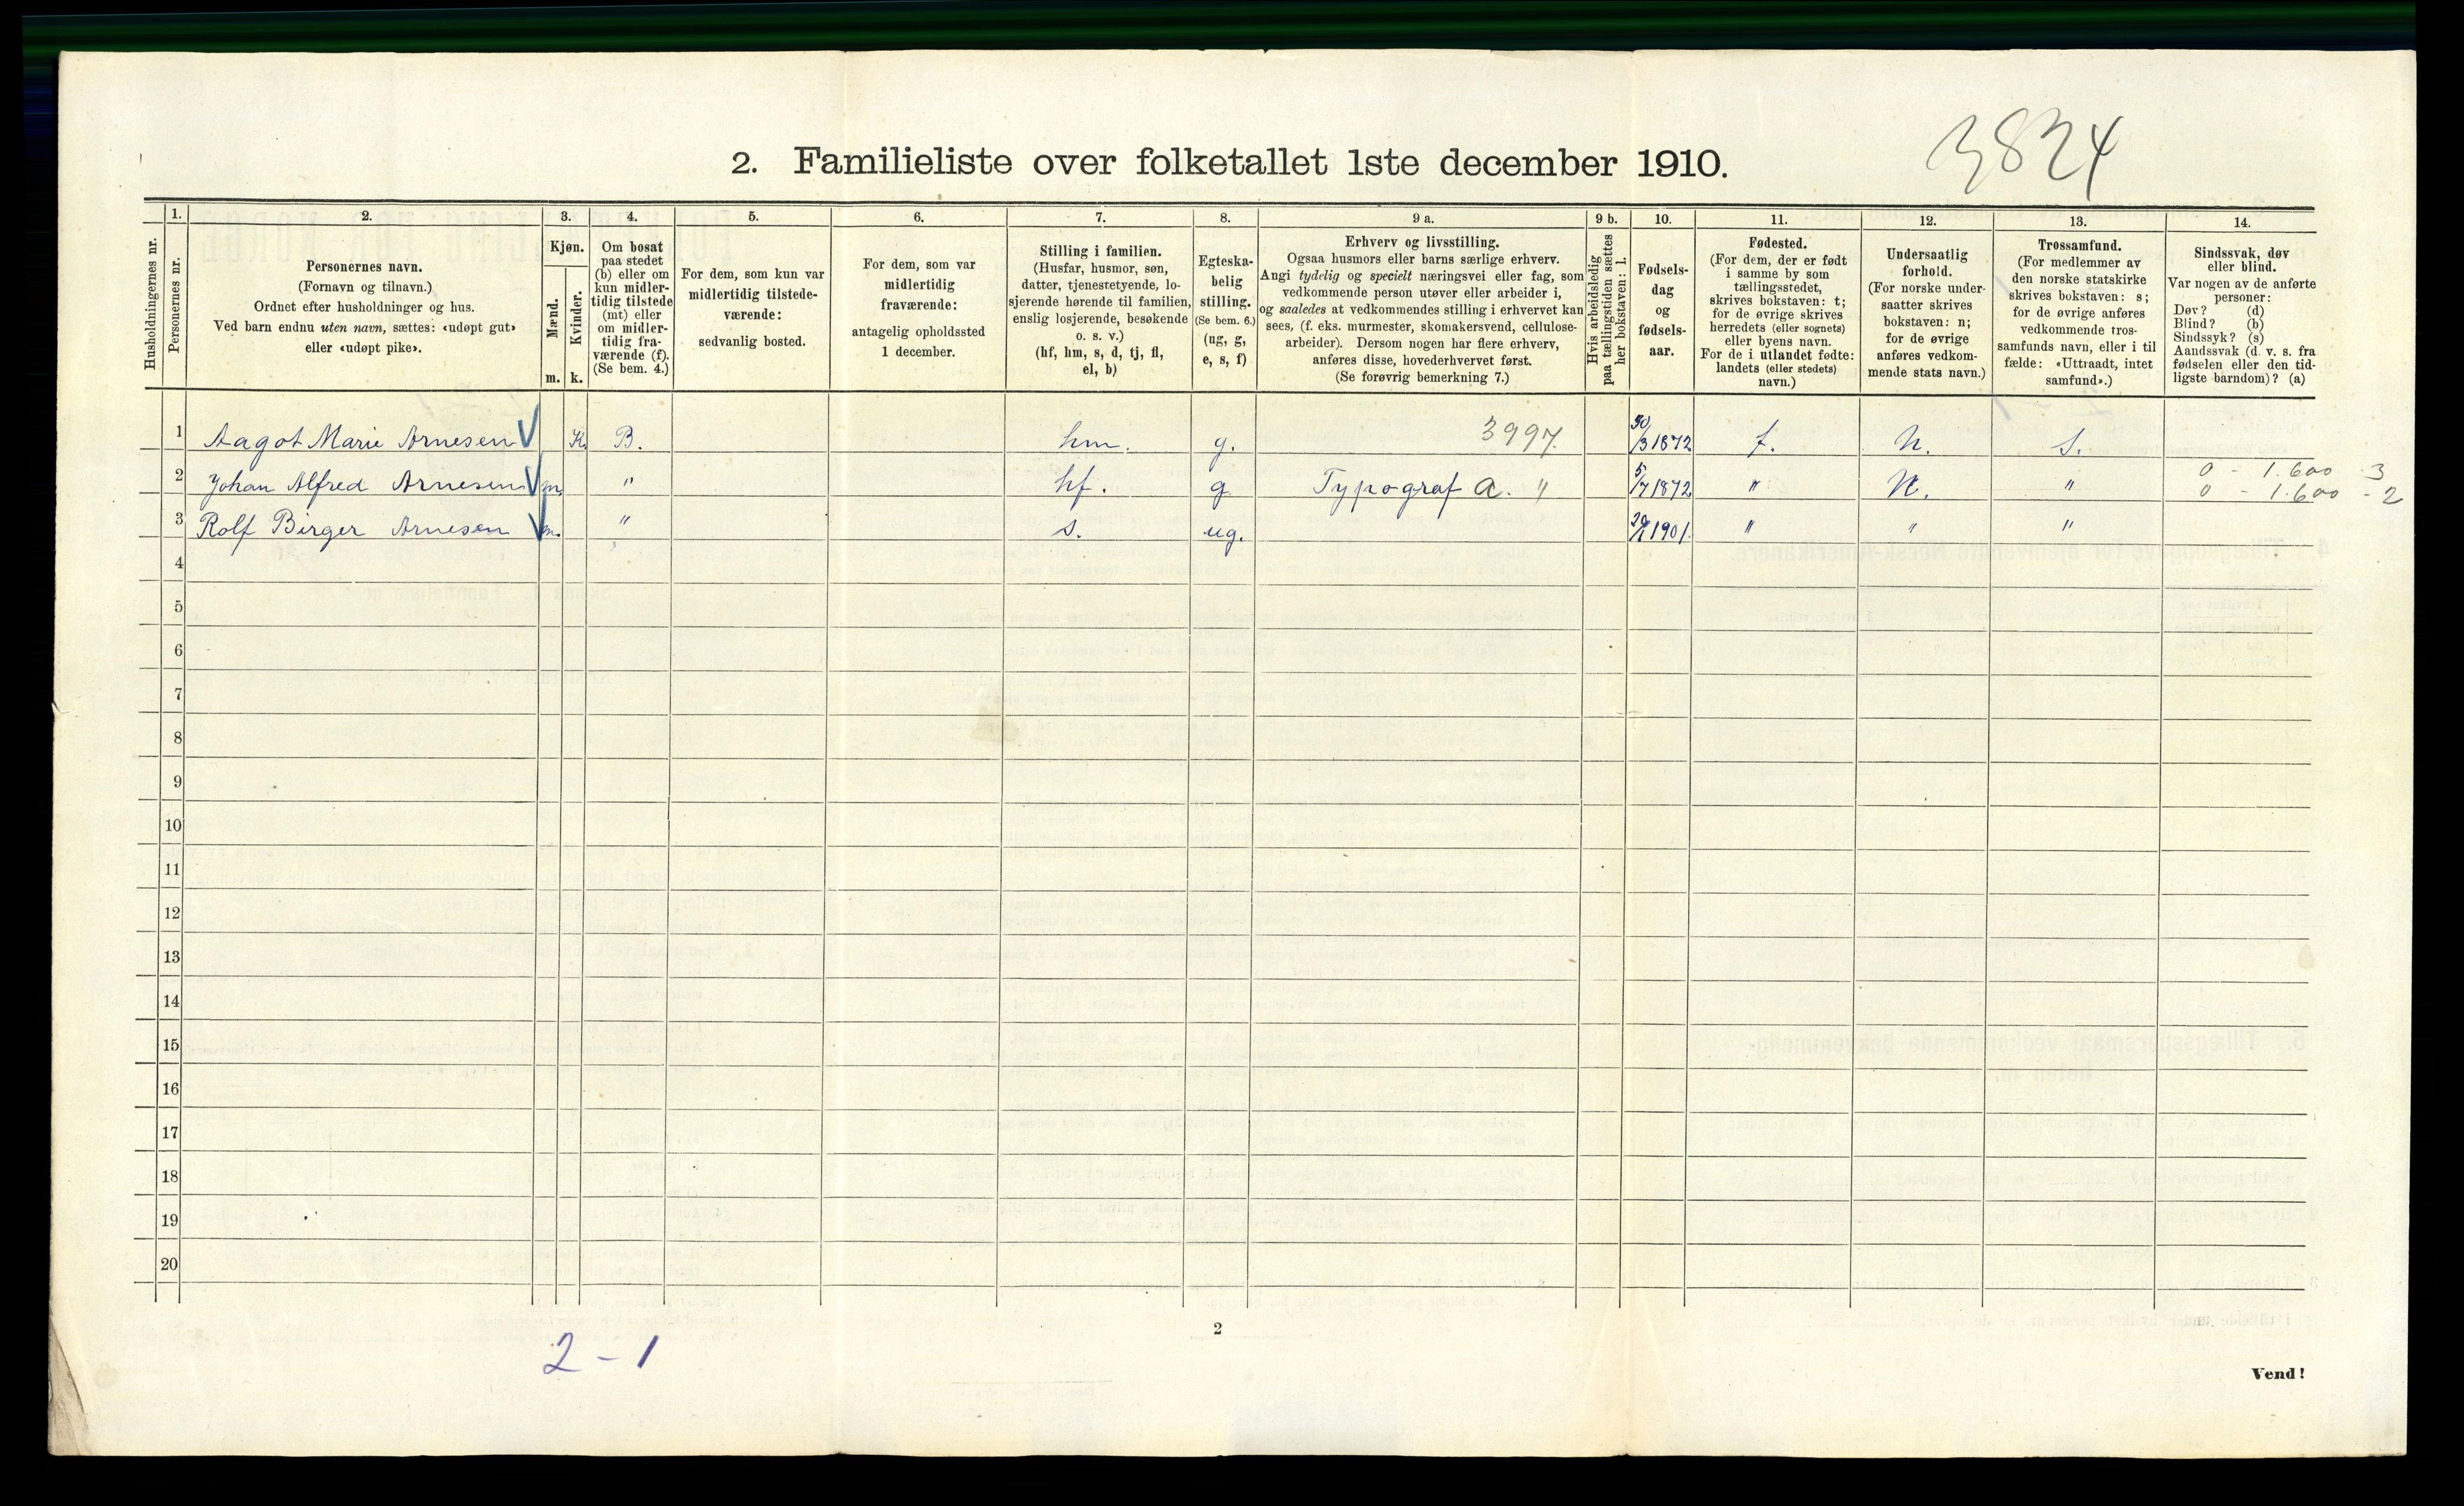 3824
2. Familieliste over folketallet 1ste december 1910.
Husholdningernes nr.
1.
Personernes nr.
2.
Personernes navn.
(Fornavn og tilnavn.)
Ordnet efter husholdninger og hus.
Ved barn endnu uten navn, sættes: «udøpt gut»
eller «udøpt pike».
3.
Kjøn.
Mænd.
m.
Kvinder.
k.
4.
Om bosat
paa stedet
(b) eller om
kun midler-
tidig tilstede
(mt) eller
om midler-
tidig fra-
værende (f).
(Se bem. 4.)
5.
For dem, som kun var
midlertidig tilstede-
værende:
sedvanlig bosted.
6.
For dem, som var
midlertidig
fraværende:
antagelig opholdssted
1 december.
7.
Stilling i familien.
(Husfar, husmor, søn,
datter, tjenestetyende, lo-
sjerende hørende til familien,
enslig losjerende, besøkende
o. s. v.)
(hf, hm, s, d, tj, fl,
el, b)
8.
Egteska-
belig
stilling.
(Se bem. 6.)
(ug, g,
e, s, f)
9 a.
Erhverv og livsstilling.
Ogsaa husmors eller barns særlige erhverv.
Angi tydelig og specielt næringsvei eller fag, som
vedkommende person utøver eller arbeider i,
og saaledes at vedkommendes stilling i erhvervet kan
sees, (f. eks. murmester, skomakersvend, cellulose-
arbeider). Dersom nogen har flere erhverv,
anføres disse, hovederhvervet først.
(Se forøvrig bemerkning 7.)
9 b.
Hvis arbeidsledig
paa tællingstiden sættes
her bokstaven: l.
10.
Fødsels-
dag
og
fødsels-
aar.
11.
Fødested.
(For dem, der er født
i samme by som
tællingsstedet,
skrives bokstaven: t;
for de øvrige skrives
herredets (eller sognets)
eller byens navn.
For de i utlandet fødte:
landets (eller stedets)
navn.)
12.
Undersaatlig
forhold.
(For norske under-
saatter skrives
bokstaven: n;
for de øvrige
anføres vedkom-
mende stats navn.)
13.
Trossamfund.
(For medlemmer av
den norske statskirke
skrives bokstaven: s;
for de øvrige anføres
vedkommende tros-
samfunds navn, eller i til
fælde: «Uttraadt, intet
samfund».)
14.
Sindssvak, døv
eller blind.
Var nogen av de anførte
personer:
Døv? (d)
Blind? (b)
Sindssyk? (s)
Aandssvak (d. v. s. fra
fødselen eller den tid-
ligste barndom)? (a)
1 Aagot Marie Arnesen K. B. hm. g. 3997. 30/3 1872 t. N. S.
2 Johan Alfred Arnesen m. " hf. g. Typograf a. " 5/7 1872 " N. " 0 - 1.600 - 3
0 - 1.600 - 2
3 Rolf Birger Arnesen m. " s. ug. 1901. " " "
4
5
6
7
8
9
10
11
12
13
14
15
16
17
18
19
20
2
2 - 1
Vend!